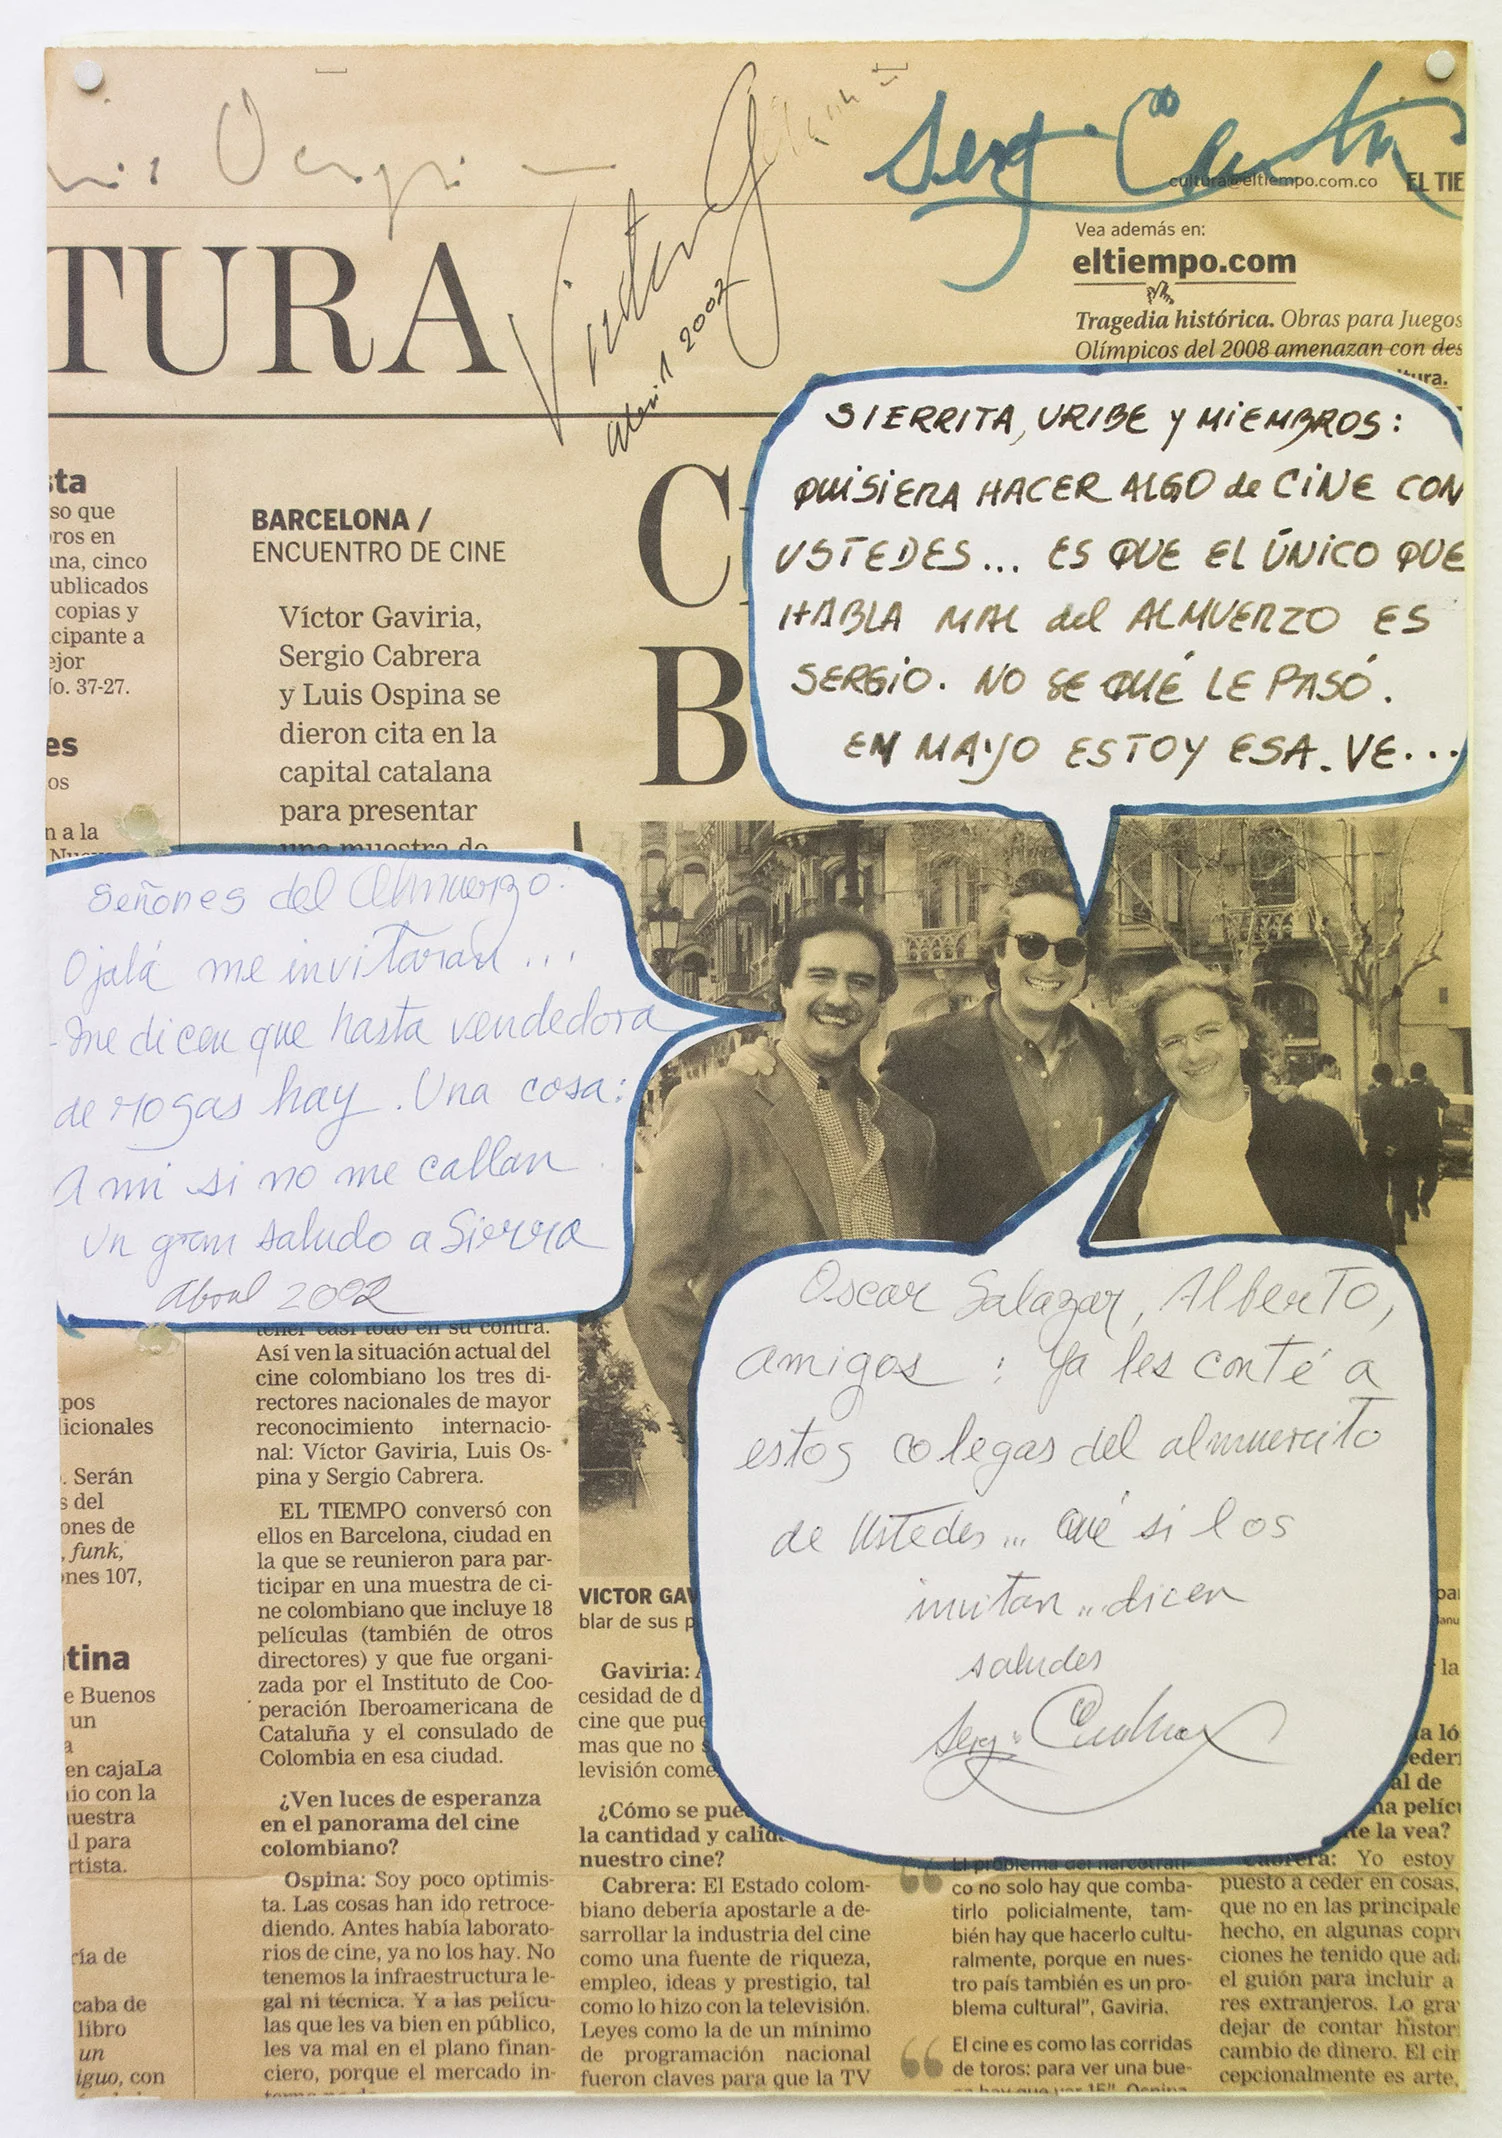 Luis Ospina
Victor G
abril 2002
Sergio Cabrera
cultura@eltiempo.com.co EL TIE
TURA
Vea además en:
eltiempo.com
Tragedia histórica. Obras para Juegos
Olímpicos del 2008 amenazan con des
tura.
SIERRITA, URIBE Y MIEMBROS:
QUISIERA HACER ALGO de CINE CON
USTEDES... ES QUE EL ÚNICO QUE
HABLA MAL del ALMUERZO ES
SERGIO. NO SE QUÉ LE PASÓ.
EN MAYO ESTOY ESA. VE...
sta
so que
ros en
ana, cinco
ublicados
copias y
cipante a
ejor
No. 37-27.
es
os
n a la
BARCELONA /
ENCUENTRO DE CINE
Víctor Gaviria,
Sergio Cabrera
y Luis Ospina se
dieron cita en la
capital catalana
para presentar
una muestra de
C
B
Señores del Almuerzo:
Ojalá me invitaran...
-Me dicen que hasta vendedora
de rosas hay. Una cosa:
A mi si no me callan
Un gran saludo a Sierra
Abril 2002
Oscar Salazar, Alberto,
amigos: Ya les conté a
estos colegas del almuercito
de Ustedes... Qué si los
invitan.. dicen
saludes
Sergio Cabrera
pos
licionales
. Serán
s del
ones de
, funk,
ones 107,
tina
e Buenos
un
a
en cajaLa
io con la
uestra
al para
rtista.
ría de
caba de
libro
un
iguo, con
tener casi todo en su contra.
Así ven la situación actual del
cine colombiano los tres di-
rectores nacionales de mayor
reconocimiento internacio-
nal: Víctor Gaviria, Luis Os-
pina y Sergio Cabrera.
EL TIEMPO conversó con
ellos en Barcelona, ciudad en
la que se reunieron para par-
ticipar en una muestra de ci-
ne colombiano que incluye 18
películas (también de otros
directores) y que fue organi-
zada por el Instituto de Coo-
peración Iberoamericana de
Cataluña y el consulado de
Colombia en esa ciudad.
¿Ven luces de esperanza
en el panorama del cine
colombiano?
Ospina: Soy poco optimis-
ta. Las cosas han ido retroce-
diendo. Antes había laborato-
rios de cine, ya no los hay. No
tenemos la infraestructura le-
gal ni técnica. Y a las pelícu-
las que les va bien en público,
les va mal en el plano finan-
ciero, porque el mercado in-
VICTOR GAV
blar de sus p
Gaviria: A
cesidad de d
cine que pue
mas que no s
levisión come
¿Cómo se pue
la cantidad y calid
nuestro cine?
Cabrera: El Estado colom-
biano debería apostarle a de-
sarrollar la industria del cine
como una fuente de riqueza,
empleo, ideas y prestigio, tal
como lo hizo con la televisión.
Leyes como la de un mínimo
de programación nacional
fueron claves para que la TV
“El problema del narcotráfi-
co no solo hay que comba-
tirlo policialmente, tam-
bién hay que hacerlo cultu-
ralmente, porque en nues-
tro país también es un pro-
blema cultural”, Gaviria.
“El cine es como las corridas
de toros: para ver una bue-
na hay que ver 15”, Ospina
la
a ló
eder
al de
na pelícu
te la vea?
Cabrera: Yo estoy
puesto a ceder en cosas,
que no en las principale
hecho, en algunas copr
ciones he tenido que ada
el guión para incluir a
res extranjeros. Lo gra
dejar de contar histor
cambio de dinero. El cin
cepcionalmente es arte,